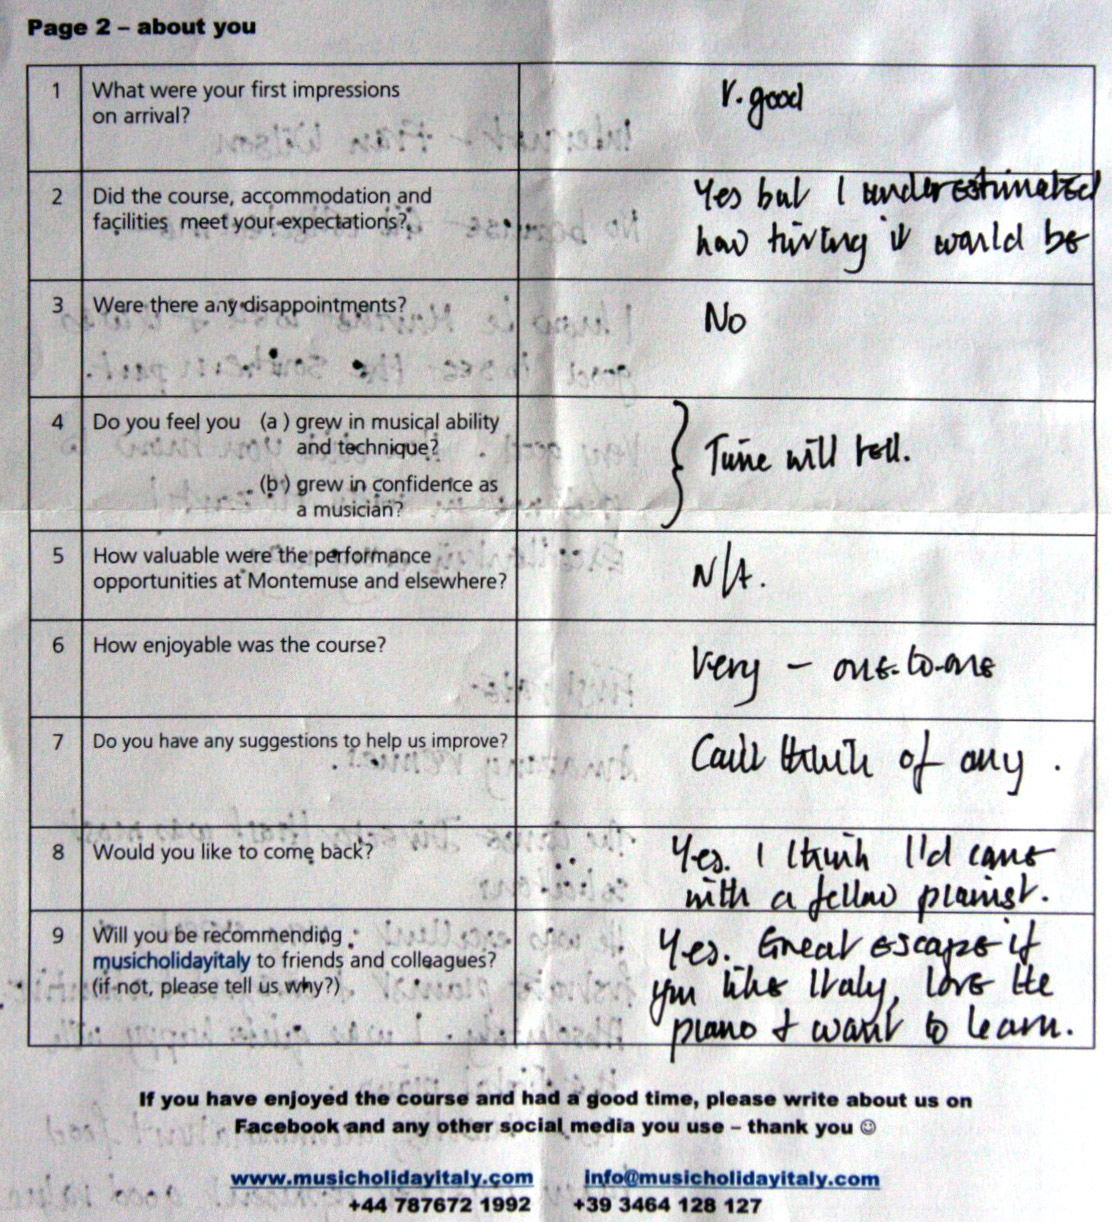 Page 2 – about you
1 What were your first impressions
on arrival?
V. good
2 Did the course, accommodation and
facilities meet your expectations?
Yes but I underestimated
how tiring it would be
3 Were there any disappointments?
No
4 Do you feel you (a) grew in musical ability
and technique?
(b) grew in confidence as
a musician?
Time will tell.
5 How valuable were the performance
opportunities at Montemuse and elsewhere?
N/A.
6 How enjoyable was the course?
Very – one-to-one
7 Do you have any suggestions to help us improve?
Can't think of any.
8 Would you like to come back?
Yes. I think I'd come
with a fellow pianist.
9 Will you be recommending
musicholidayitaly to friends and colleagues?
(if not, please tell us why?)
Yes. Great escape if
you like Italy, love the
piano & want to learn.
If you have enjoyed the course and had a good time, please write about us on
Facebook and any other social media you use – thank you ☺
www.musicholidayitaly.com info@musicholidayitaly.com
+44 787672 1992 +39 3464 128 127